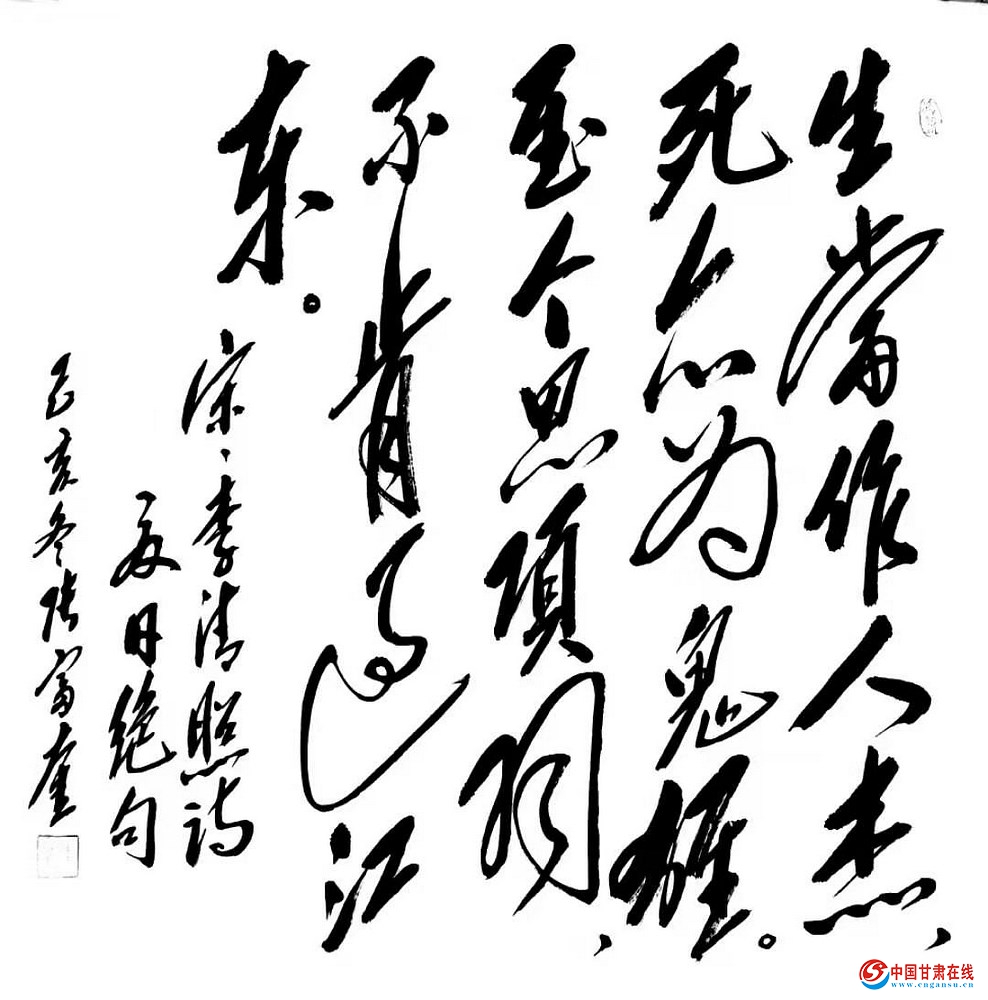 生當作人杰、
死亦为鬼雄。
至今思項羽、
不肯过江
東。
宋、李清照诗
夏日绝句
己亥冬张富奎
中国甘肃在线
www.cngansu.cn